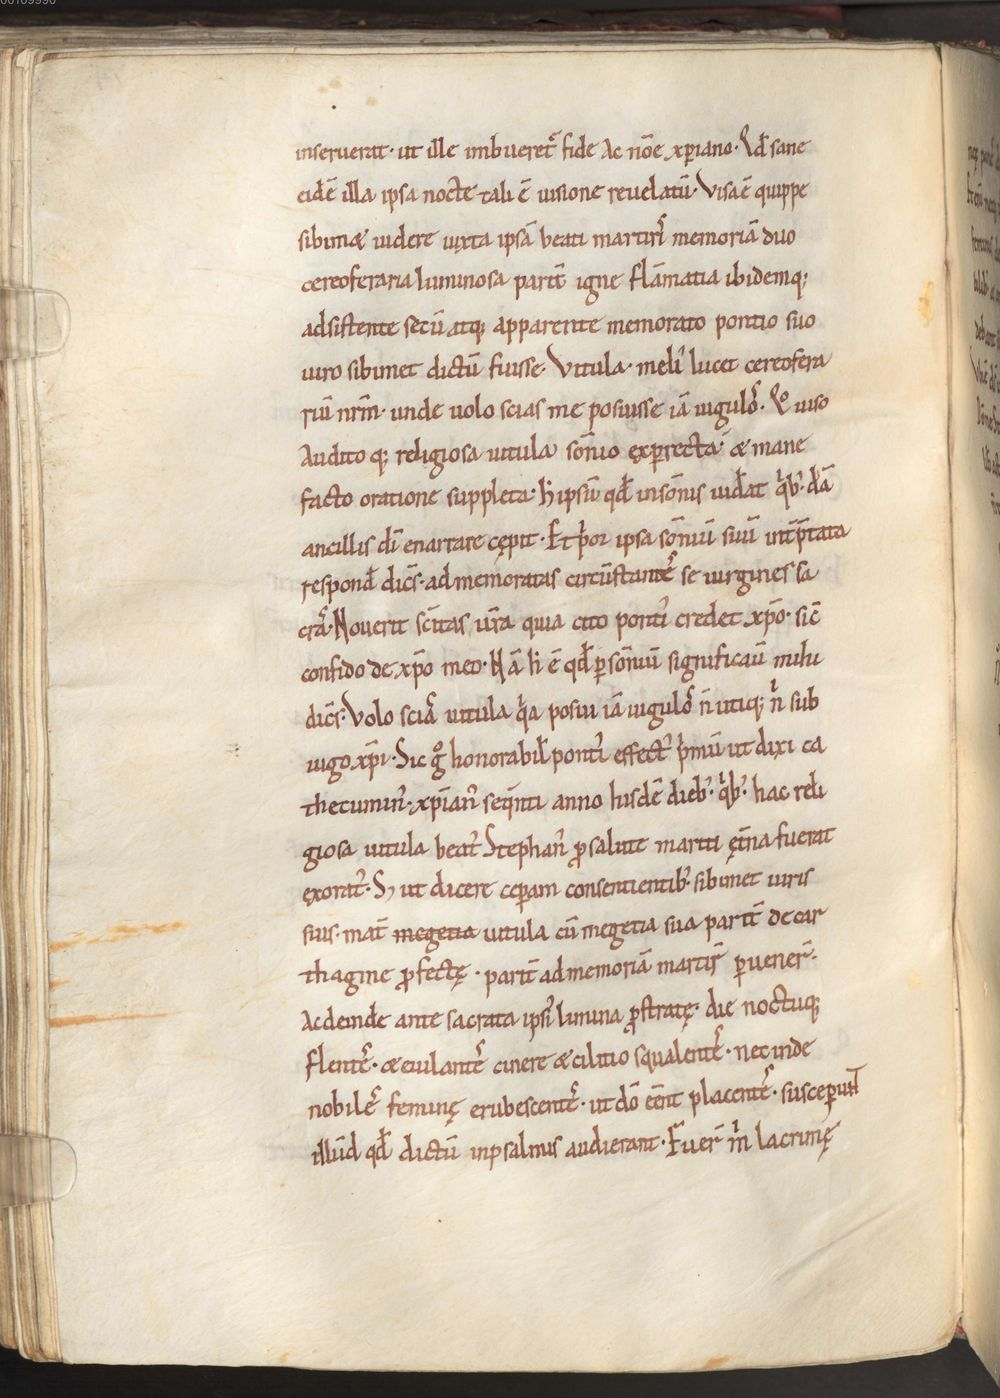 inseruerat· ut ille imbueret᷑ fide ac nōe xp̄iano· Qd̄ sane
eidē illa ipsa nocte tali ē uisione reuelatū· Visa ē quippe
sibimæ uidere iuxta ipsā beati martiri᷑ memoriā duo
cereoferaria luminosa parit̄ igne flāmatia ibidemq;
adsistente secū atq; apparente memorato pontio suo
uiro sibimet dictū fuisse· Vitula· meli᷑ lucet cereofera
riū nr̄m· unde uolo scias me posuisse iā iugulo᷑· Quo uiso
Audito q; religiosa uitula sōnio exp̱recta· æ mane
facto oratione suppleta· h ipsū qd̄ insōnis uid̄at qͥb᷑ dā
ancillis dī enarrare cępit· Et p̄or ipsa sōniū suū int̄p̄tata
respond̄ dice᷑s· ad memoratas circūstante᷑ se uirgines sa
cra᷑· Nouerit sc̄itas ūra quia cito ponti᷑ credet xp̄o· sic̄
confido de xp̄o meo· N ā h ē qd̄ p̱ sōniū significaū mihi
dice᷑s· Volo scia᷑ uitula qͥa posui iā iugulo᷑ n̄ utiq; n᷑ sub
iugo xp̄i· Sic g̊ honorabil̄ ponti᷑ effect᷑ p̄mū ut dixi ca
thecumin᷑· xp̄ian᷑ seq̄nti anno hisdē dieb᷑· qͥb᷑ hac reli
giosa uitula beat᷑ Stephan᷑ p̱ salute mariti ęt̄na fuerat
exorat᷑· S; ut dicere cep̱am consentientib᷑ sibimet uiris
suis· mat̄ megetia uitula cū megetia sua parit̄ de car
thagine p̱fectę· parit̄ ad memoriā martir᷑ p̱uener̄·
Ac deinde ante sacrata ipsi᷑ limina p̱stratę· die noctuq;
flente᷑· æ eiulante᷑ cinere æ cilitio squalente᷑· nec inde
nobile᷑ feminę erubescente᷑· ut dō eēnt placente᷑· suscep̱unt
illūd qd̄ dictū in psalmis audierant· Fuer̄ m̄ lacrimę